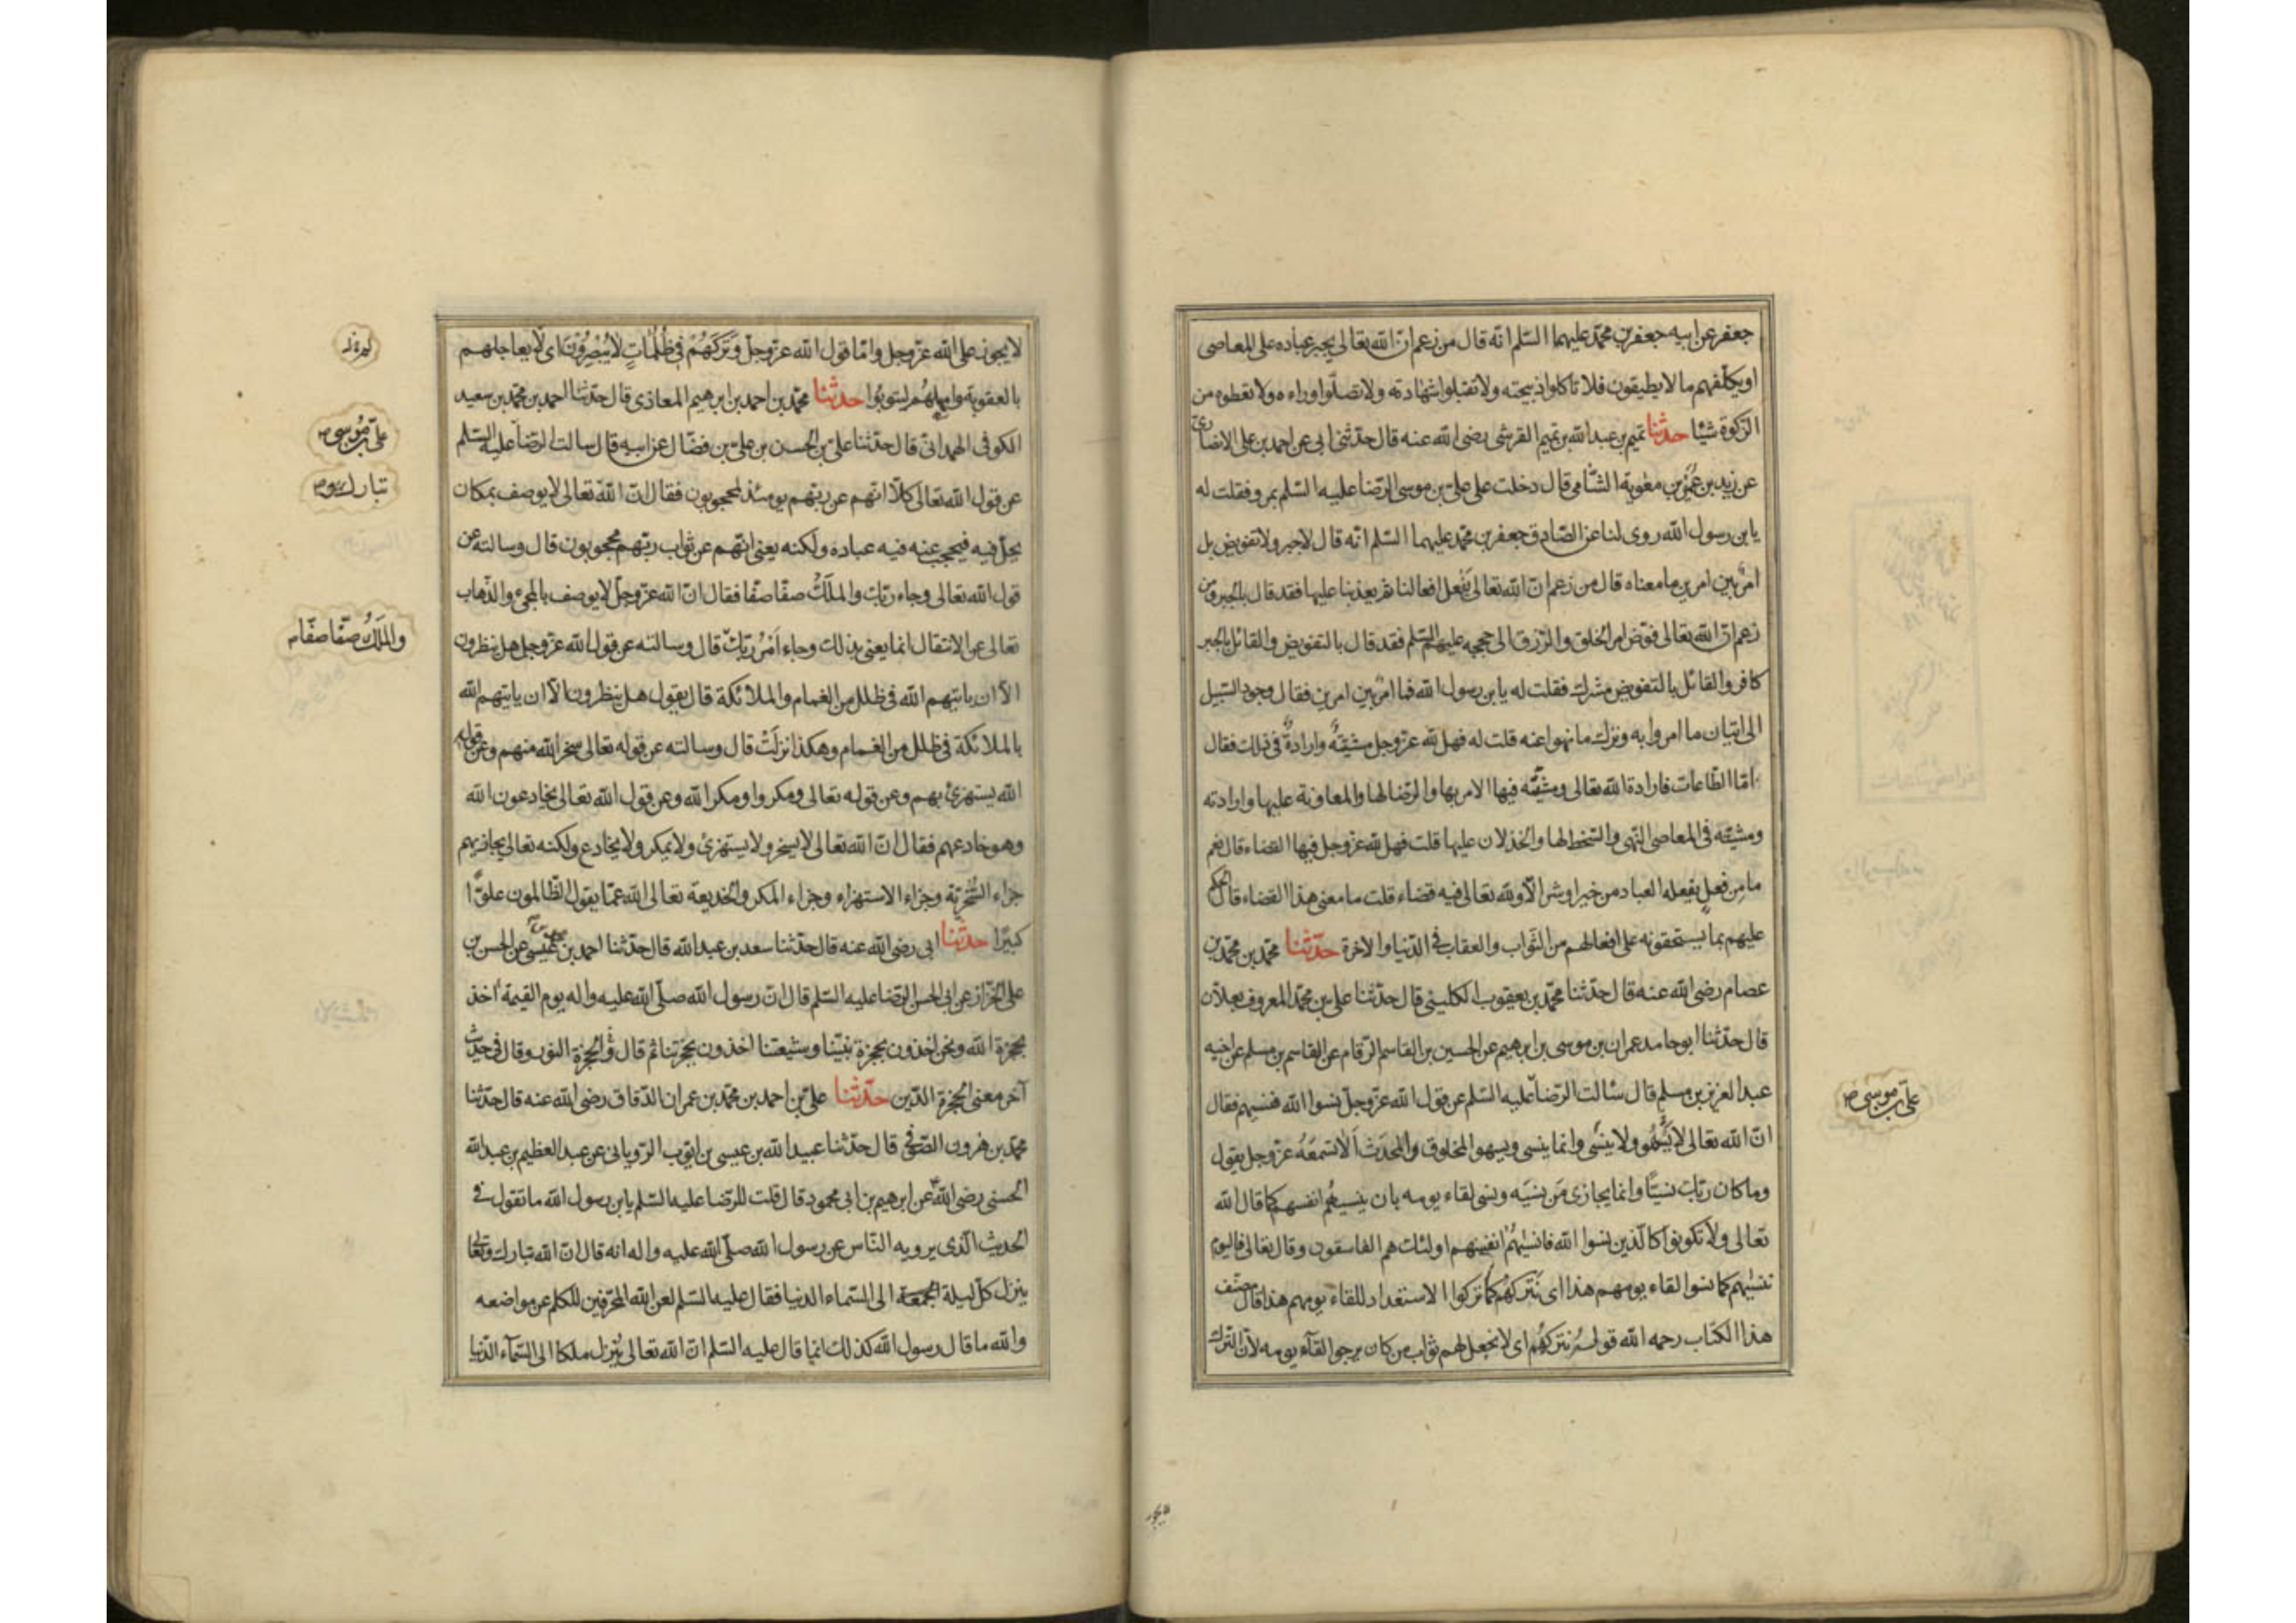 جعفر عن ابيه جعفر بن محمّد عليهما السّلم انّه قال من زعم انّ الله تعالى يجبر عباده على المعاصى
او يكلّفهم ما لا يطيقون فلا تاكلوا ذبيحته ولا تقبلوا شهادته ولا تصلّوا وراءه ولا تعطوه من
الزكوة شيئا حدّثنا تميم بن عبد الله بن تميم القرشى رضى الله عنه قال حدّثنى ابى عن احمد بن على الانصارى
عن زيد بن عمير بن معوية الشّامى قال دخلت على علىّ بن موسى الرّضا عليه السّلم بمرو فقلت له
يا بن رسول الله روى لنا عن الصّادق جعفر بن محمّد عليهما السّلم انّه قال لا جبر ولا تفويض بل
امر بين امرين ما معناه قال من زعم انّ الله تعالى يفعل افعالنا ثمّ يعذّبنا عليها فقد قال بالجبر ومن
زعم انّ الله تعالى فوّض امر الخلق والرّزق الى حججه عليهم السّلم فقد قال بالتفويض والقائل بالجبر
كافر والقائل بالتفويض مشرك فقلت له يا بن رسول الله فما امر بين امرين فقال وجود السّبيل
الى اتيان ما امروا به وترك ما نهوا عنه قلت له فهل لله عزّ وجل مشيّةٌ وارادةٌ فى ذلك فقال
امّا الطّاعات فارادة الله تعالى ومشيّته فيها الامر بها والرّضا لها والمعاونة عليها وارادته
ومشيّته فى المعاصى النّهى والسّخط لها والخذلان عليها قلت فهل لله عزّ وجل فيها القضاء قال نعم
ما مِن فعلٍ يفعله العباد من خير او شرّ الّا ولله تعالى فيه قضاء قلت ما معنى هذا القضاء قال الحكم
عليهم بما يستحقونه على افعالهم من الثّواب والعقاب فى الدّنيا والاخرة حدّثنا محمّد بن محمّد بن
عصام رضى الله عنه قال حدّثنا محمّد بن يعقوب الكلينى قال حدّثنا على بن محمّد المعروف بعلّان
قال حدّثنا ابو حامد عمران بن موسى بن ابرهيم عن الحسين بن القاسم الرّقام عن القاسم بن مسلم عن اخيه
عبد العزيز بن مسلم قال سئالت الرّضا عليه السّلم عن قول الله عزّ وجلّ نسوا الله فنسيهم فقال
انّ الله تعالى لا يَسْهُو ولا ينسى وانما ينسى ويسهو المخلوق والمحدَث اَلا تسمعُه عزّ وجل يقول
وما كان ربّك نسيّا وانما يجازى مَن نسيَه ونسى لقاء يومه بان ينسيهُم انفسهم كما قال الله
تعالى ولا تكونوا كالّذين نسوا الله فانسٰيهُم انفسهم اولئك هم الفاسقون وقال تعالى فاليوم
ننسٰيهم كما نسوا لقاء يومهم هذا اى نَتركهُم كما تركوا الاستعداد للقاء يومهم هذا قال مصنّف
هذا الكتاب رحمه الله قوله نتركهُم اى لا نجعل لهم ثواب من كان يرجو القآء يومه لانّ الترك
علىّ بن موسى
لا يجوز
لا يجوز على الله عزّ وجل وامّا قول الله عزّ وجلّ وَتَرَكَهُمْ فى ظُلُمٰاتٍ لا يُبْصِرُونَ اى لا يعاجلهم
بالعقوبة وامهلهُم ليتوبُوا حدّثنا محمّد بن احمد بن ابرهيم المعاذى قال حدّثنا احمد بن محمّد بن سعيد
الكوفى الهمدانىّ قال حدّثنا علىّ بن الحسن بن علىّ بن فضّال عن ابيه قال سالت الرّضا عليه السّلم
عن قول الله تعالى كلّا انّهم عن ربّهم يومئذ لمحجوبون فقال انّ الله تعالى لا يوصف بمكان
يحلّ فيه فيحجب عنه فيه عباده ولكنه يعنى انّهم عن ثواب ربّهم محجوبون قال وسالته عن
قول الله تعالى وجاء ربّك والملَكُ صفّا صفّا فقال انّ الله عزّ وجلّ لا يوصف بالمجىء والذّهاب
تعالى عن الانتقال انما يعنى بذلك وجاء اَمْرُ ربّك قال وسالته عن قول الله عزّ وجل هل ينظرون
الّا ان ياتيهم الله فى ظلل من الغمام والملائكة قال يقول هل ينظرون الّا ان ياتيهم الله
بالملائكة فى ظلل من الغمام وهكذا نزلَتْ قال وسالته عن قوله تعالى سخر الله منهم وعن قوله
الله يستهزئ بهم وعن قوله تعالى ومكروا ومكر الله وعن قول الله تعالى يخادعون الله
وهو خادعهم فقال انّ الله تعالى لا يسخر ولا يستهزئ ولا يمكر ولا يخادع ولكنه تعالى يجازيهم
جزاء السُّخريّة وجزاء الاستهزاء وجزاء المكر والخديعة تعالى الله عمّا يقول الظّالمون علوّا
كبيرًا حدّثنا ابى رضى الله عنه قال حدّثنا سعد بن عبد الله قال حدّثنا احمد بن محمد بن عيسى عن الحسن بن
على الخزّاز عن ابى الحسن الرّضا عليه السّلم قال انّ رسول الله صلّى الله عليه واله يوم القيمة اخذ
بحجزة الله ونحن اخذون بحجزة نبيّنا وشيعتنا اخذون بحجزتنا ثم قال والحجزة النور وقال فى حديث
آخر معنى الحجزة الدّين حدّثنا علىّ بن احمد بن محمّد بن عمران الدّقاق رضى الله عنه قال حدّثنا
محمّد بن هرون الصّوفى قال حدّثنا عبيد الله بن عيسى بن ايّوب الرّويانى عن عبد العظيم بن عبد الله
الحسنى رضى الله عن ابرهيم بن ابى محمود قال قلت للرّضا عليه السّلم يا بن رسول الله ما تقول فى
الحديث الّذى يرويه النّاس عن رسول الله صلّى الله عليه واله انه قال انّ الله تبارك وتعالى
ينزل كلّ ليلة الجمعة الى السّماء الدنيا فقال عليه السّلم لعن الله المحرّفين للكلم عن مواضعه
والله ما قال رسول الله كذلك انما قال عليه السّلم انّ الله تعالى يُنزل ملكا الى السّمآء الدّنيا
علىّ بن مُوسى
تبارك
والمَلَكُ صفّا صفّا